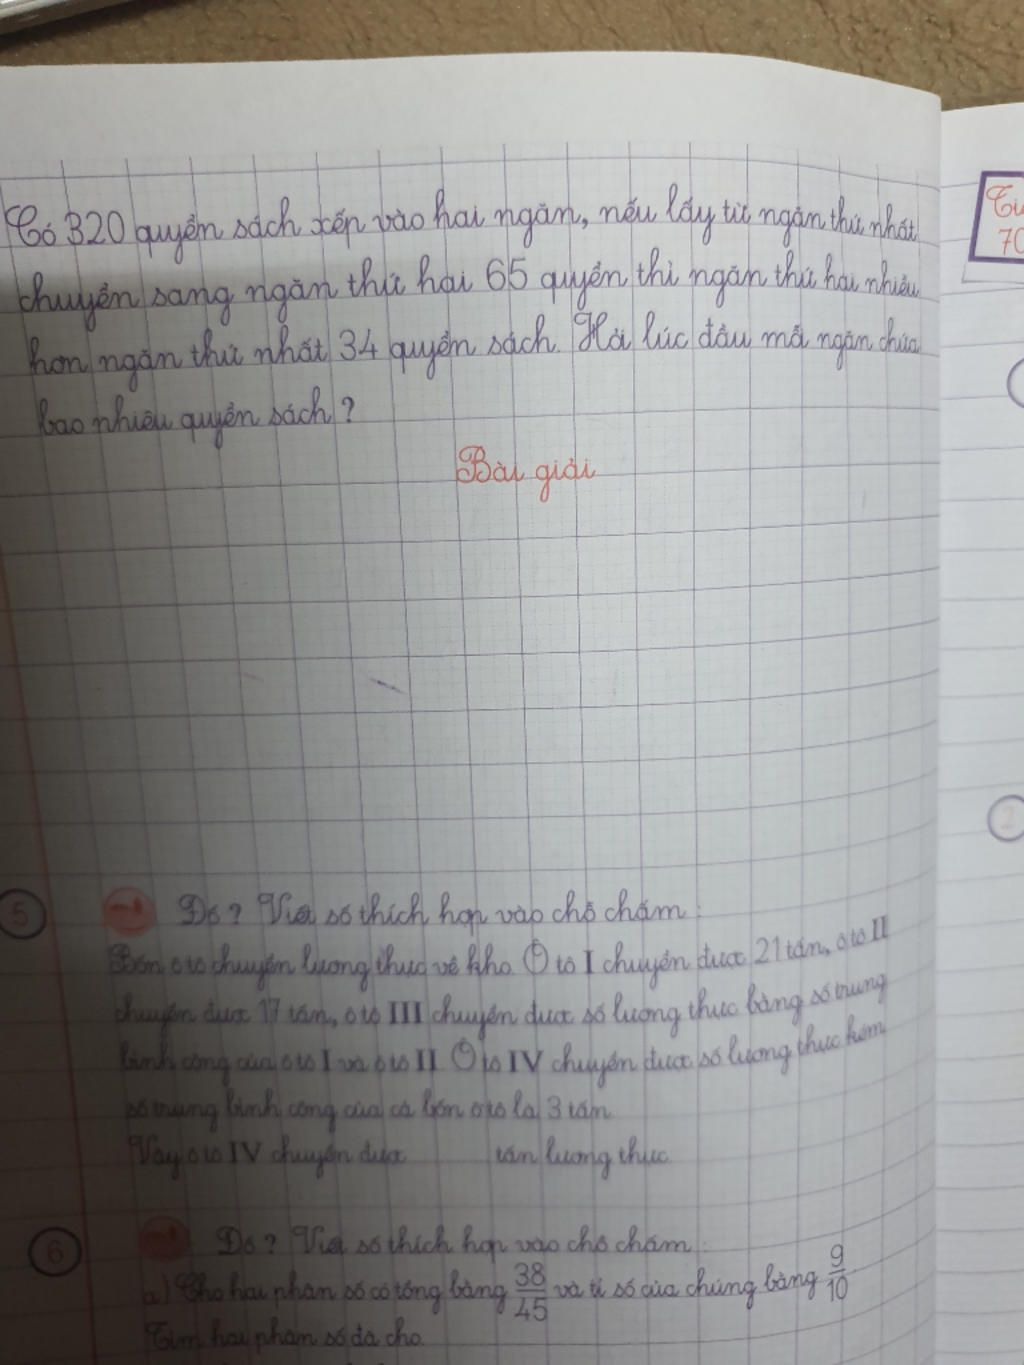 Có 320 quyển sách xếp vào hai ngăn, nếu lấy từ ngăn thứ nhất
chuyển sang ngăn thứ hai 65 quyển thì ngăn thứ hai nhiều
hơn ngăn thứ nhất 34 quyển sách. Hỏi lúc đầu mỗi ngăn chứa
bao nhiêu quyển sách?
Bài giải
5
Đố? Viết số thích hợp vào chỗ chấm:
Bốn ô tô chuyển lương thực về kho. Ô tô I chuyển được 21 tấn, ô tô II
chuyển được 17 tấn, ô tô III chuyển được số lương thực bằng số trung
bình cộng của ô tô I và ô tô II. Ô tô IV chuyển được số lương thực kém
số trung bình cộng của cả bốn ô tô là 3 tấn
Vậy ô tô IV chuyển được tấn lương thực
6
Đố? Viết số thích hợp vào chỗ chấm:
a) Cho hai phân số có tổng bằng 38/45 và tỉ số của chúng bằng 9/10
Tìm hai phân số đã cho.
70
2